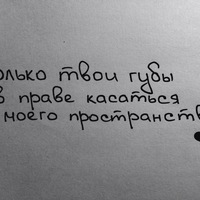 олько твои губы
в праве касаться
моего пространств